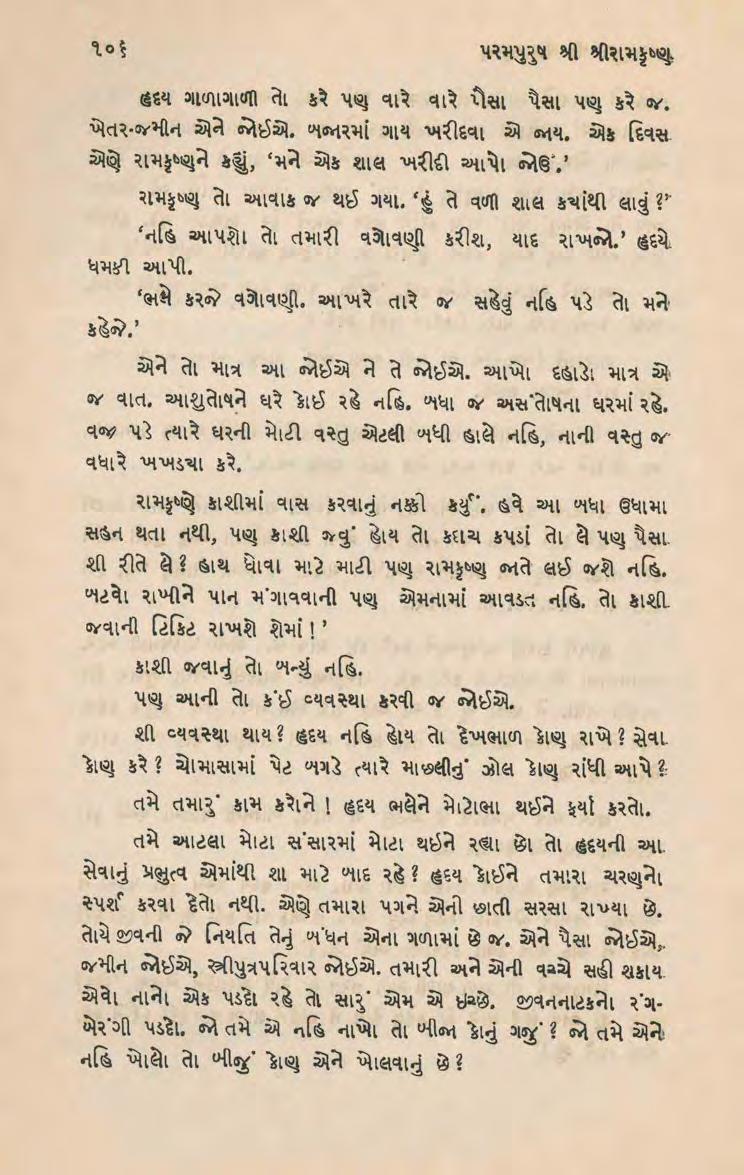 ૧૦૬
પરમપુરુષ શ્રી શ્રીરામકૃષ્ણ
હૃદય ગાળાગાળી તો કરે પણ વારે વારે પૈસા પૈસા પણ કરે જ.
ખેતર-જમીન એને જોઈએ. બજારમાં ગાય ખરીદવા એ જાય. એક દિવસ
એણે રામકૃષ્ણને કહ્યું, ‘મને એક શાલ ખરીદી આપો જોઉં.’
રામકૃષ્ણ તો આવાક જ થઈ ગયા. ‘હું તે વળી શાલ ક્યાંથી લાવું ?’
‘નહિ આપશો તો તમારી વગોવણી કરીશ, યાદ રાખજો.’ હૃદયે
ધમકી આપી.
‘ભલે કરજે વગોવણી. આખરે તારે જ સહેવું નહિ પડે તો મને
કહેજે.’
એને તો માત્ર આ જોઈએ ને તે જોઈએ. આખો દહાડો માત્ર એ
જ વાત. આશુતોષને ઘરે કોઈ રહે નહિ. બધા જ અસંતોષના ઘરમાં રહે.
વજ્ર પડે ત્યારે ઘરની મોટી વસ્તુ એટલી બધી હાલે નહિ, નાની વસ્તુ જ
વધારે ખખડ્યા કરે.
રામકૃષ્ણે કાશીમાં વાસ કરવાનું નક્કી કર્યું. હવે આ બધા ઉધામા
સહન થતા નથી, પણ કાશી જવું હોય તો કદાચ કપડાં તો લે પણ પૈસા
શી રીતે લે ? હાથ ધોવા માટે માટી પણ રામકૃષ્ણ જાતે લઈ જશે નહિ.
બટવો રાખીને પાન મંગાવવાની પણ એમનામાં આવડત નહિ. તો કાશી
જવાની ટિકિટ રાખશે શેમાં ! ’
કાશી જવાનું તો બન્યું નહિ.
પણ આની તો કંઈ વ્યવસ્થા કરવી જ જોઈએ.
શી વ્યવસ્થા થાય ? હૃદય નહિ હોય તો દેખભાળ કોણ રાખે ? સેવા
કોણ કરે ? ચોમાસામાં પેટ બગડે ત્યારે માછલીનું ઝોલ કોણ રાંધી આપે ?
તમે તમારું કામ કરોને ! હૃદય ભલેને મોટોભા થઈને ફર્યા કરતો.
તમે આટલા મોટા સંસારમાં મોટા થઈને રહ્યા છો તો હૃદયની આ
સેવાનું પ્રભુત્વ એમાંથી શા માટે બાદ રહે ? હૃદય કોઈને તમારા ચરણનો
સ્પર્શ કરવા દેતો નથી. એણે તમારા પગને એની છાતી સરસા રાખ્યા છે.
તોયે જીવની જે નિયતિ તેનું બંધન એના ગળામાં છે જ. એને પૈસા જોઈએ,
જમીન જોઈએ, સ્ત્રીપુત્રપરિવાર જોઈએ. તમારી અને એની વચ્ચે સહી શકાય
એવો નાનો એક પડદો રહે તો સારું એમ એ ઇચ્છે. જીવનનાટકનો રંગ-
બેરંગી પડદો. જો તમે એ નહિ નાખો તો બીજા કોનું ગજું ? જો તમે એને
નહિ ખોલો તો બીજું કોણ એને ખોલવાનું છે ?